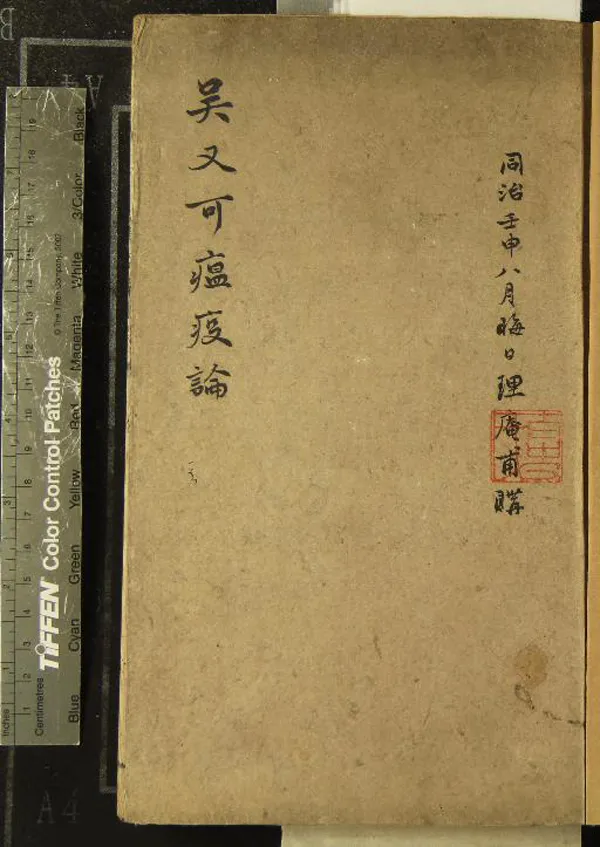 同治壬申八月晦日理庵甫購
吳又可瘟疫論
TIFFEN Color Control Patches
© The Tiffen Company, 2007
Blue Cyan Green Yellow Red Magenta White 3/Color Black
Inches
Centimetres
1 2 3 4 5 6 7 8 9 10 11 12 13 14 15 16 17 18 19
A4
B
A4